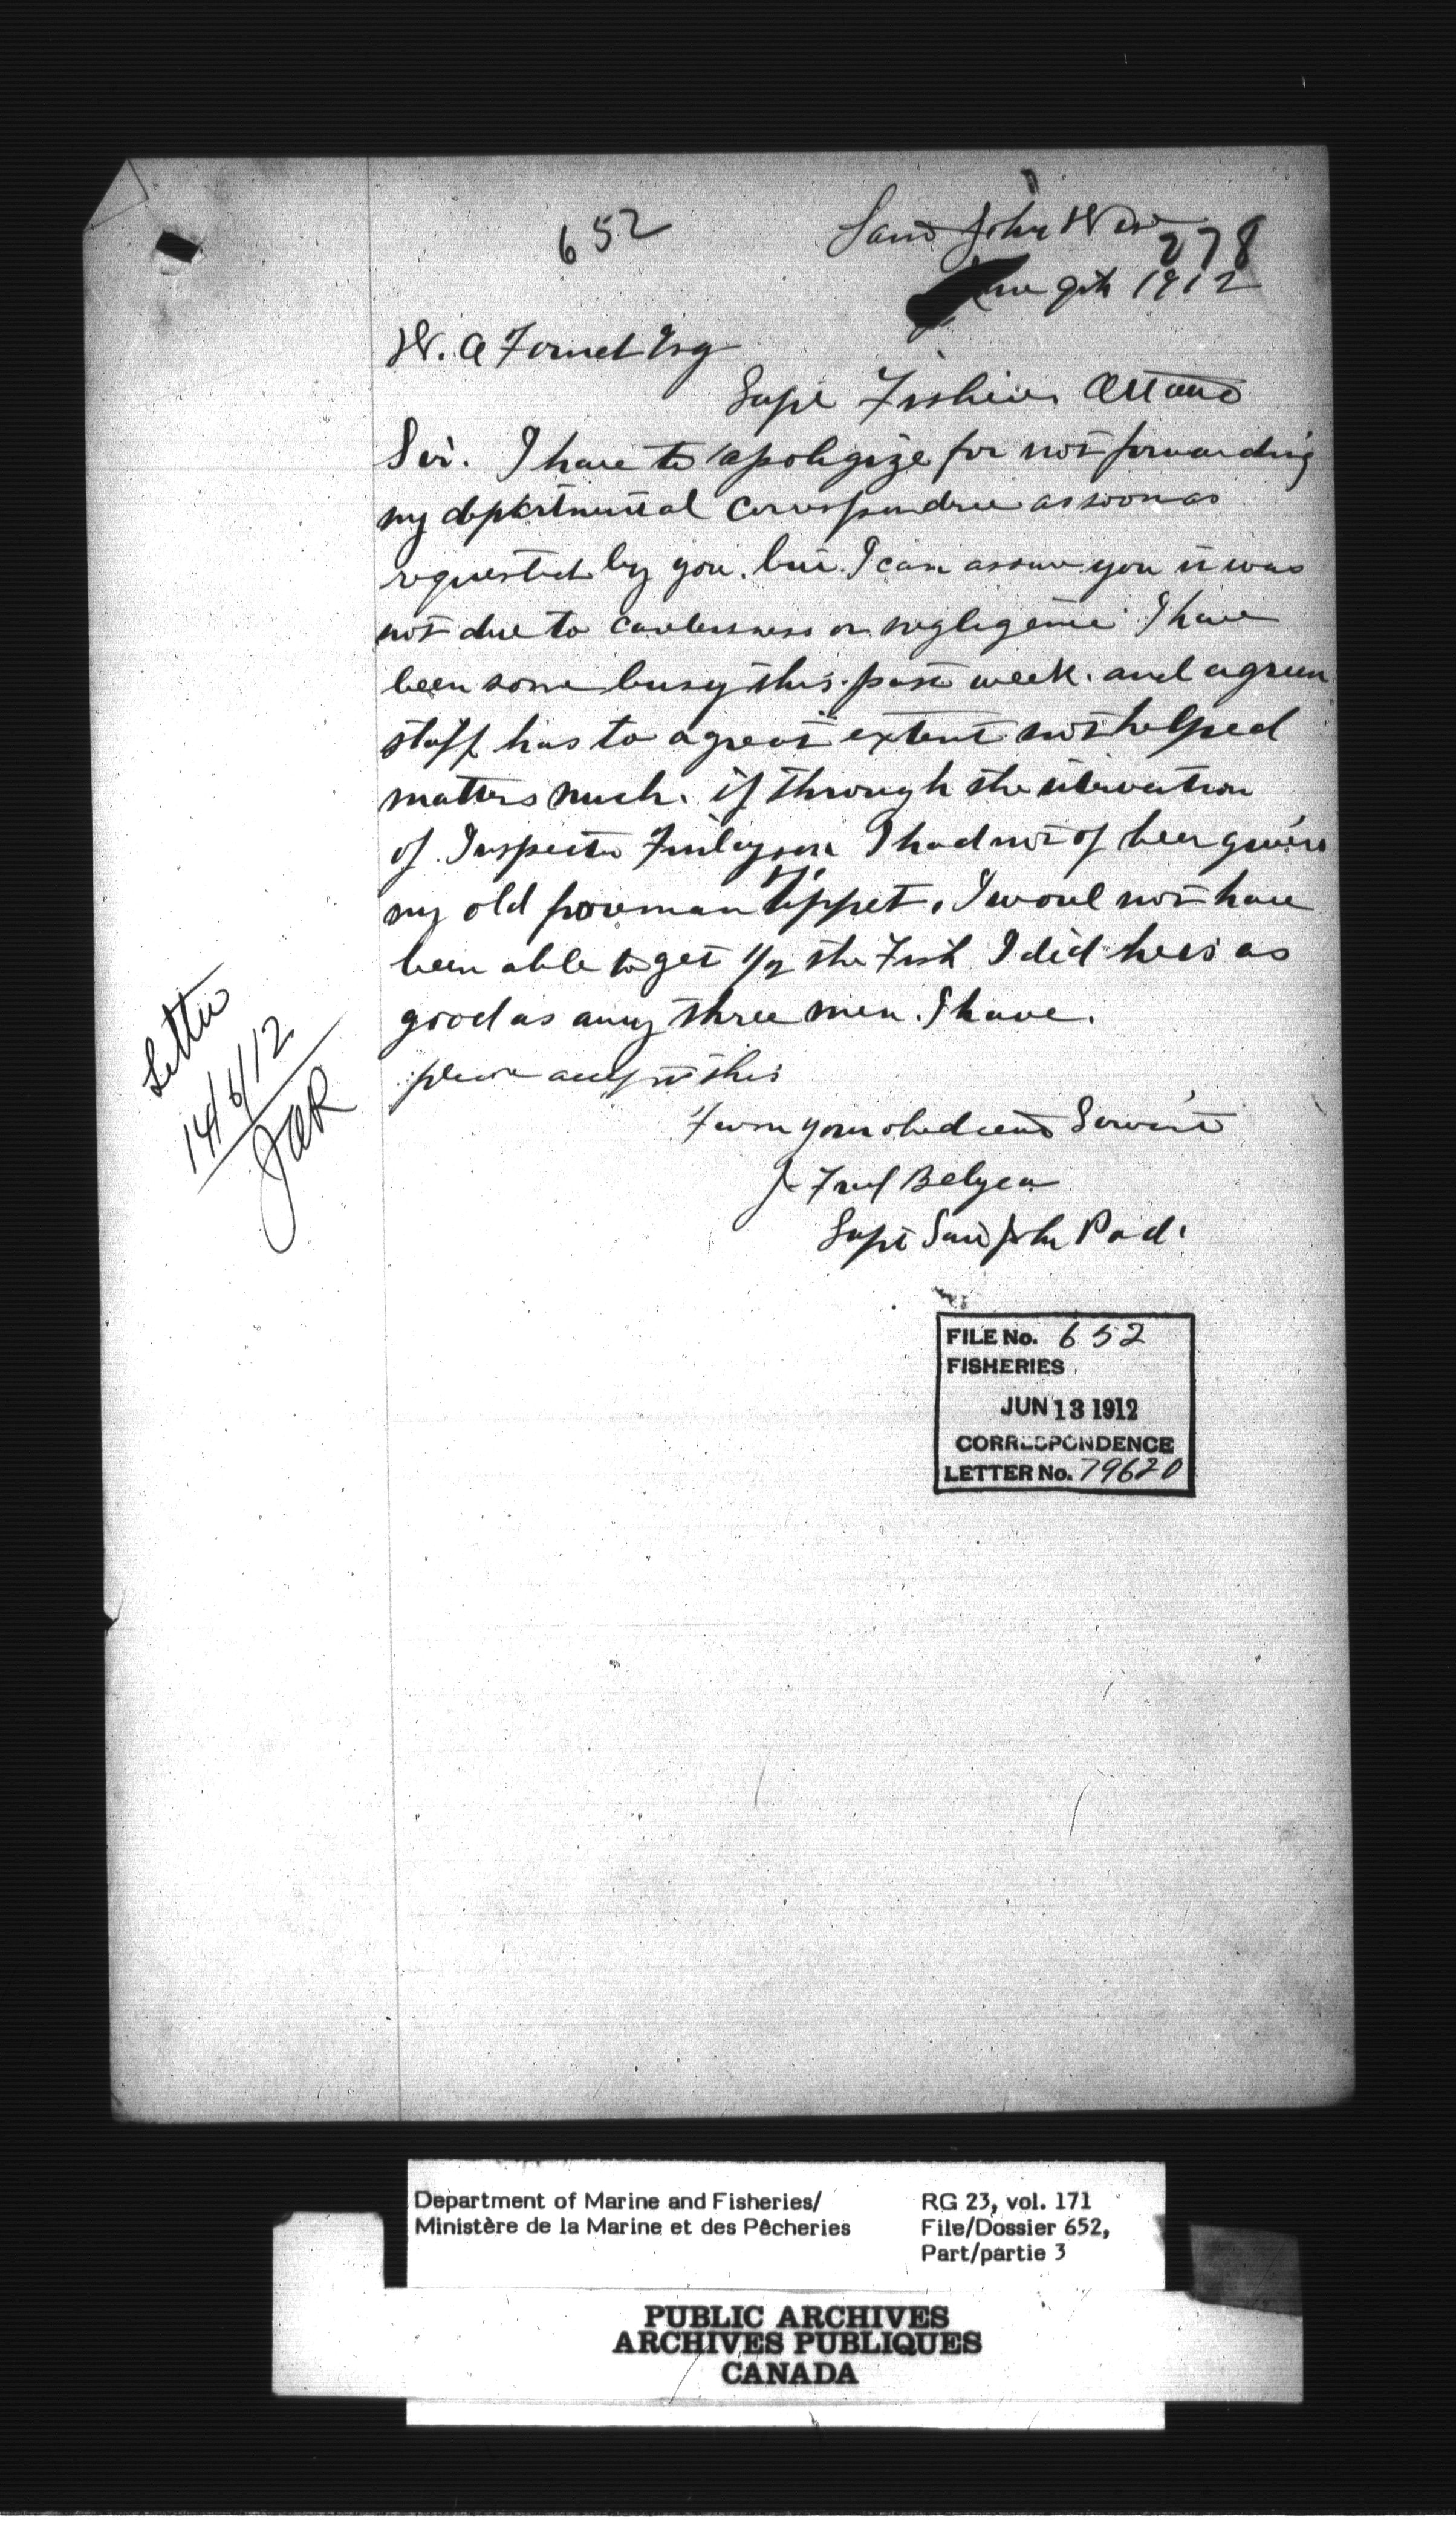 652
Saint John West
278
June 9th 1912
W. A Found Esq
Supt Fisheries Ottawa
Sir. I have to apologize for not forwarding
my departmental Correspondence as soon as
requested by you. but I can assure you it was
not due to carelessness or negligence I have
been some busy this past week. and a green
staff has to a great extent not helped
matters much. if through the
of Inspector Finlayson I had not of been given
my old foreman Tippet, I woul not have
been able to get 1/2 the Fish I did he is as
good as any three men. I have.
please accept this
From your obedient Servant
J Fred Belyea
Supt Saint John Pond.
Letter
14/6/12
JAR
FILE No. 652
FISHERIES
JUN 13 1912
CORRESPONDENCE
LETTER No. 79620
Department of Marine and Fisheries/
Ministère de la Marine et des Pêcheries
RG 23, vol. 171
File/Dossier 652,
Part/partie 3
PUBLIC ARCHIVES
ARCHIVES PUBLIQUES
CANADA